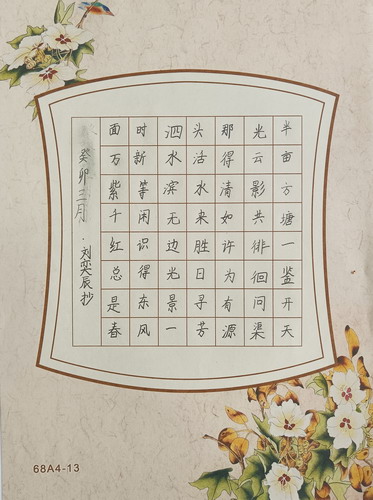 半亩方塘一鉴开天
光云影共徘徊问渠
那得清如许为有源
头活水来胜日寻芳
泗水滨无边光景一
时新等闲识得东风
面万紫千红总是春
癸卯三月·刘奕辰抄
68A4-13